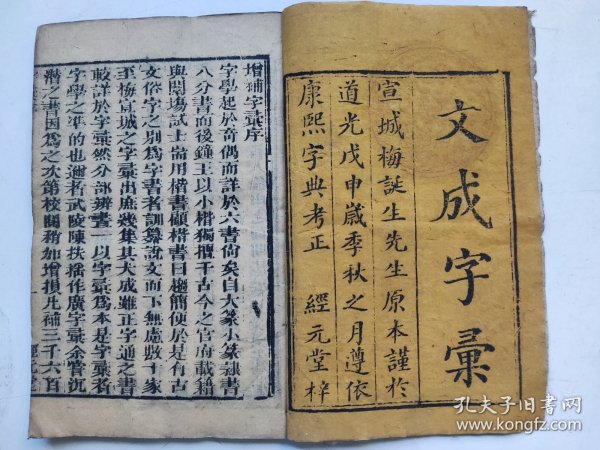 文成字彙
宣城梅誕生先生原本謹於
道光戊申歲季秋之月遵依
康熙字典考正 經元堂梓
增補字彙序
字學起於奇偶而詳於六書備矣自大篆小篆隸書
八分書而後鍾王以小楷獨擅千古今之官府載籍
與閩場試士耑用楷書顧楷書日趨簡便於是有古
文俗字之別為字書者訓纂說文而下無慮數十家
至梅宣城之字彙出庶幾集其大成雖正字通之書
較詳於字彙然分部辨畫一以字彙為本是字彙者
字學之準的也邇者武陵陳扶搖作廣字彙余嘗沉
潛之書因為之次第校閱稍加增損凡補三千六百
孔夫子旧书网
www.kongfz.com